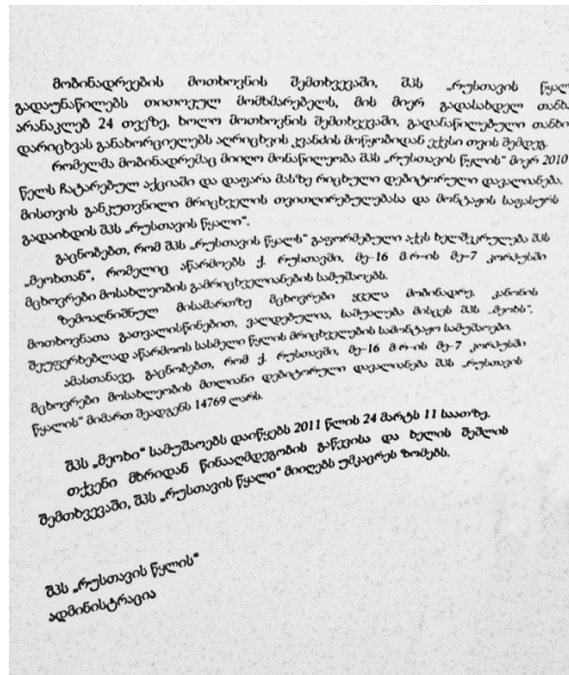 მობინადრეების მოთხოვნის შემთხვევაში, შპს „რუსთავის წყალ
გადაუნაწილებს თითოეულ მომხმარებელს, მის მიერ გადასახდელ თანხ
არანაკლებ 24 თვეზე, ხოლო მოთხოვნის შემთხვევაში, გადანაწილებული თანხი
დარიცხვას განახორციელებს აღრიცხვის კვანძის მოწყობიდან ექვსი თვის შემდეგ.
რომელმა მობინადრემაც მიიღო მონაწილეობა შპს „რუსთავის წყლის“ მიერ 2010
წელს ჩატარებულ აქციაში და დაფარა მასზე რიცხული დებიტორული დავალიანება,
მისთვის განკუთვნილი მრიცხველის თვითღირებულებასა და მონტაჟის საფასურს
გადაიხდის შპს „რუსთავის წყალი“.
გაცნობებთ, რომ შპს „რუსთავის წყალს“ გაფორმებული აქვს ხელშეკრულება შპს
„მეოხთან“, რომელიც აწარმოებს ქ. რუსთავში, მე-16 მ რ-ის მე-7 კორპუსში
მცხოვრები მოსახლეობის გამრიცხველიანების სამუშაოებს.
ზემოაღნიშნულ მისამართზე მცხოვრები ყველა მობინადრე, კანონის
მოთხოვნათა გათვალისწინებით, ვალდებულია, საშუალება მისცეს შპს „მეოხს“,
შეუფერხებლად აწარმოოს სასმელი წყლის მრიცხველების სამონტაჟო სამუშაოები.
ამასთანავე, გაცნობებთ, რომ ქ. რუსთავში, მე-16 მ რ-ის მე-7 კორპუსში
მცხოვრები მოსახლეობის მთლიანი დებიტორული დავალიანება შპს „რუსთავის
წყალის“ მიმართ შეადგენს 14769 ლარს.
შპს „მეოხი“ სამუშაოებს დაიწყებს 2011 წლის 24 მარტს 11 საათზე.
თქვენი მხრიდან წინააღმდეგობის გაწევისა და ხელის შეშლის
შემთხვევაში, შპს „რუსთავის წყალი“ მიიღებს უმკაცრეს ზომებს.
შპს „რუსთავის წყლის“
ადმინისტრაცია